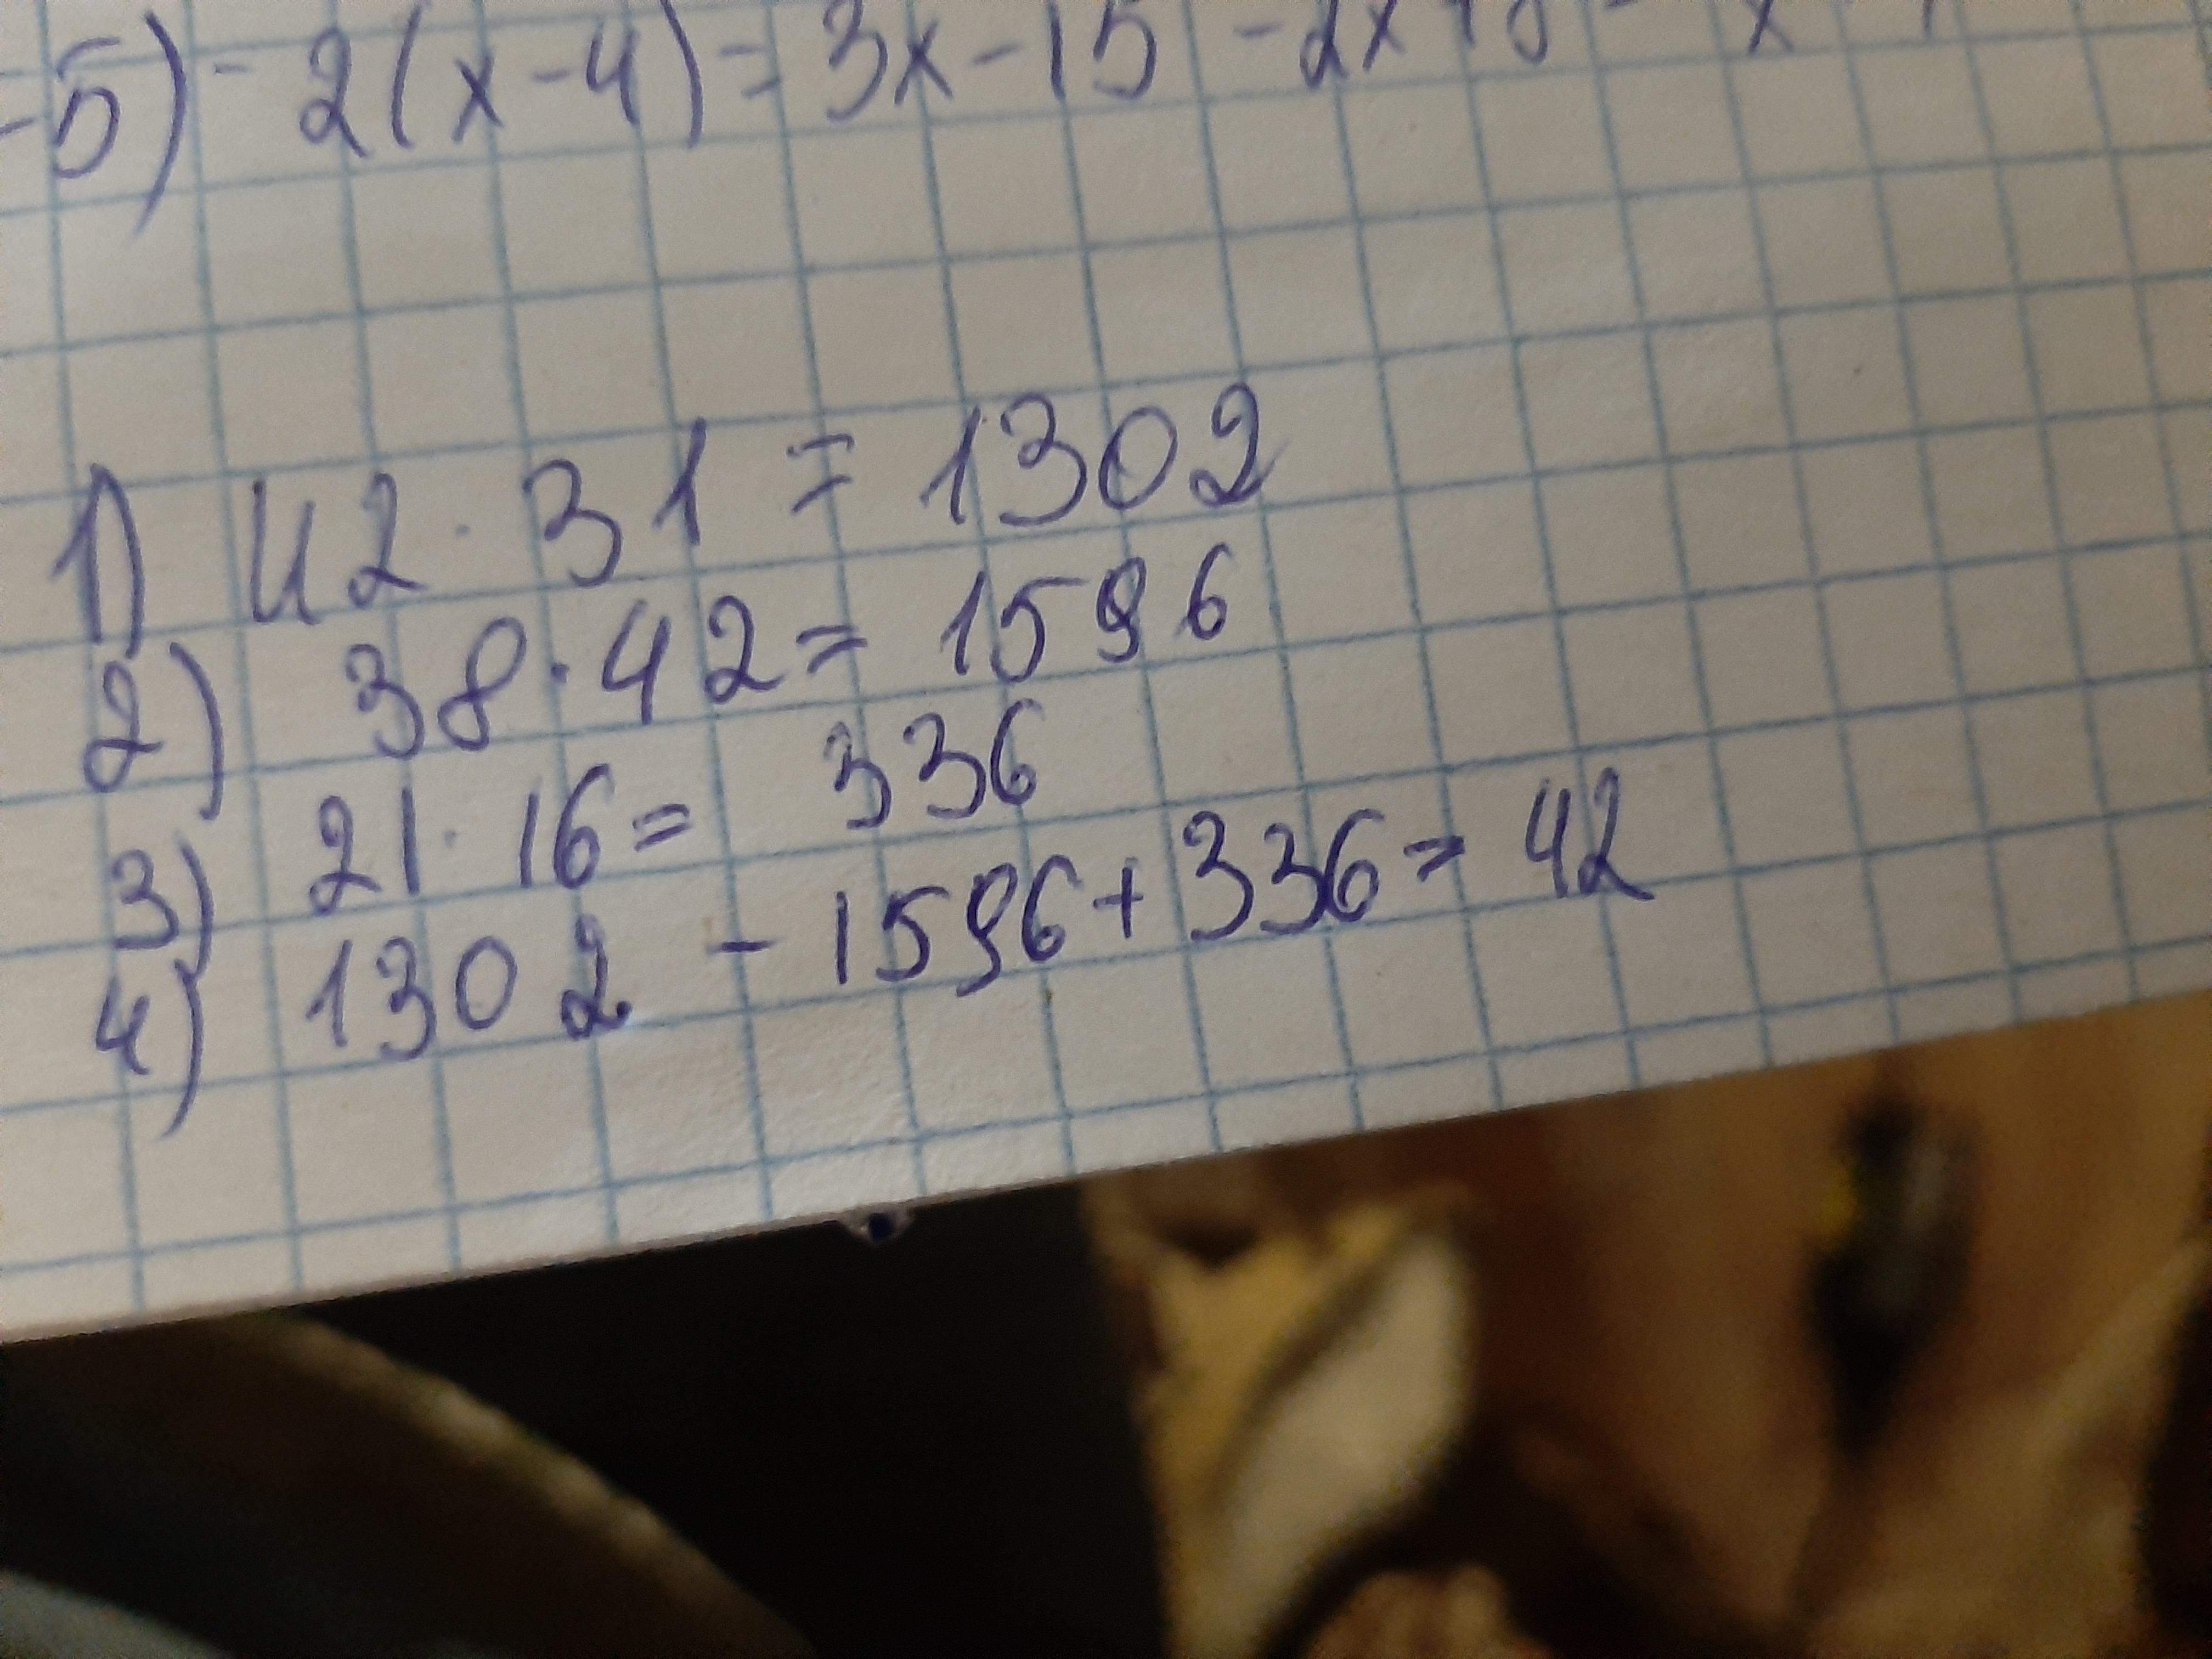 -5) - 2(x-4) = 3x - 15 - 2x + 8
1) 42 · 31 = 1302
2) 38 · 42 = 1596
3) 21 · 16 = 336
4) 1302 - 1596 + 336 = 42